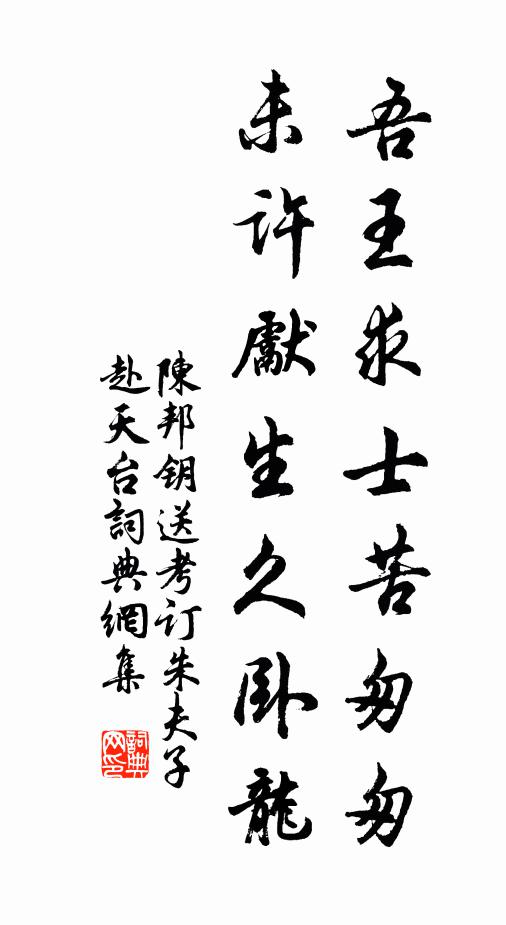 吾王求士苦匆匆
未許獻生久卧龍
陳邦钥送考订朱夫子
赴天台詞典網集
詞典网印